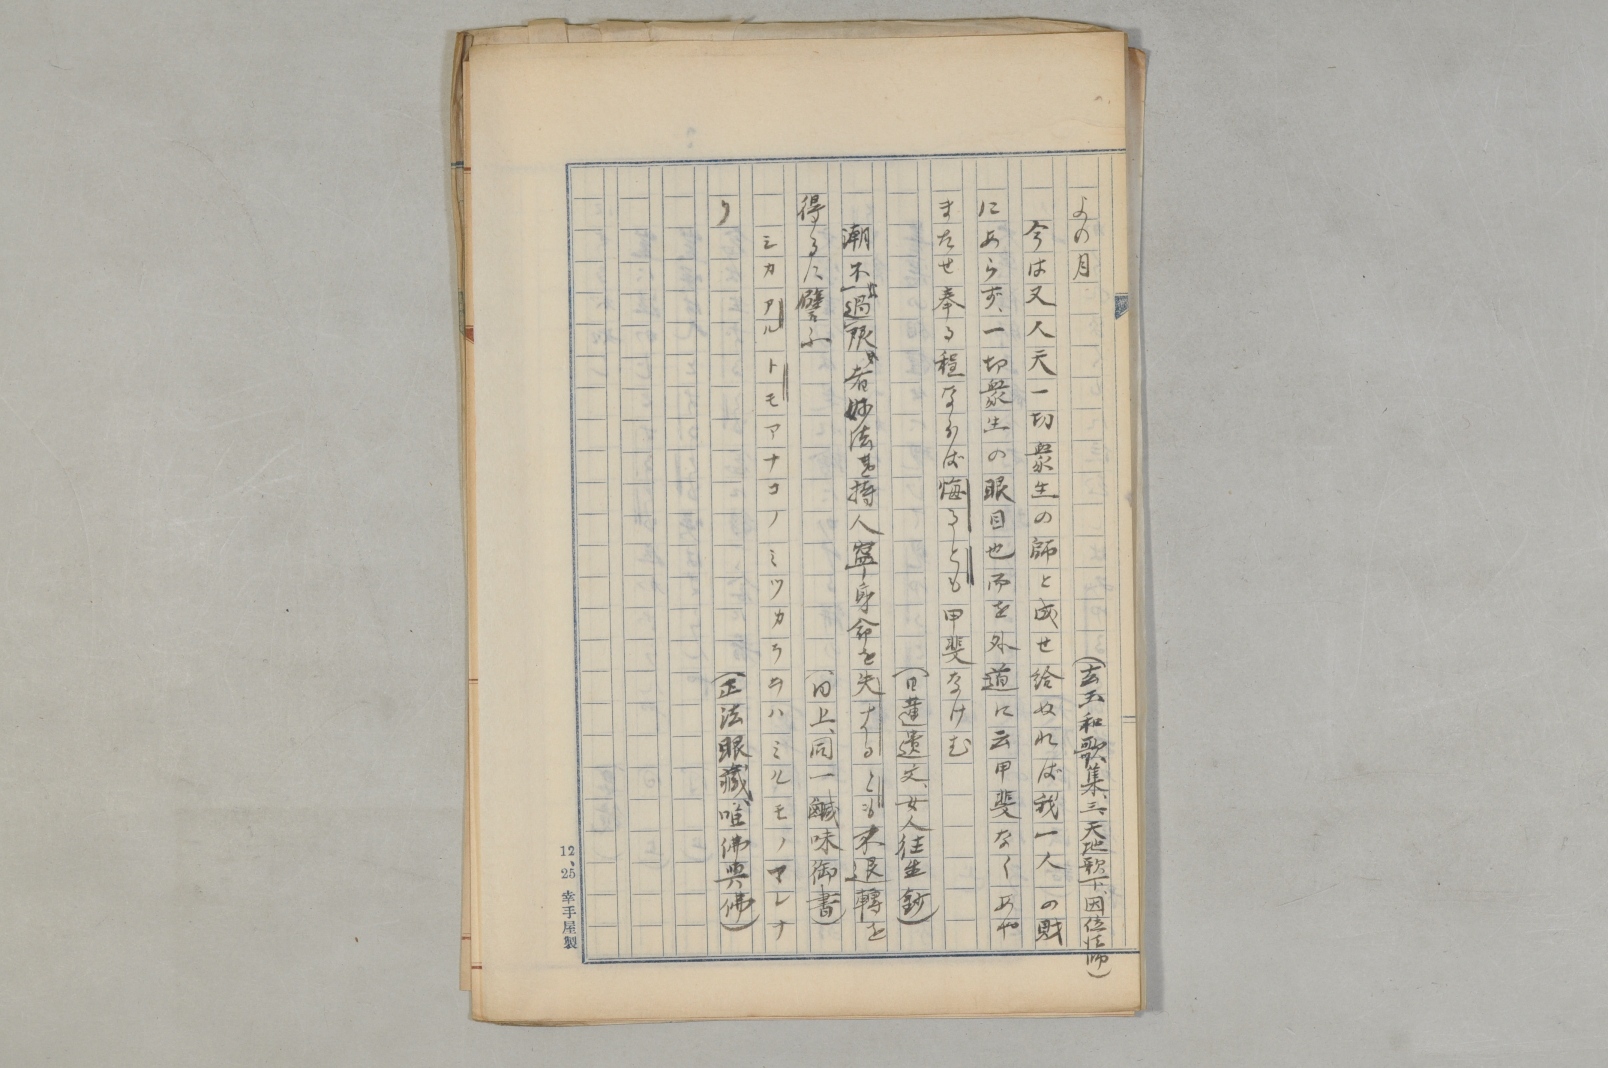 よの月
(玄玉和歌集、三、天地歌下、因位法師)
今は又人天一切衆生の師と成せ給ぬれば我一人の財
にあらず、一切衆生の眼目也而を外道に云甲斐なくあや
またせ奉る程ならば悔るとも甲斐なけむ
(日蓮遺文、女人往生鈔)
潮不過限者妙法を持人寧身命を失するとも不退轉を
得るに譬ふ
(同上、同一鹹味御書)
シカアルトモアナコノミツカラウハミルモノマレナ
り
(正法眼藏、唯佛與佛)
12、25 幸手屋製